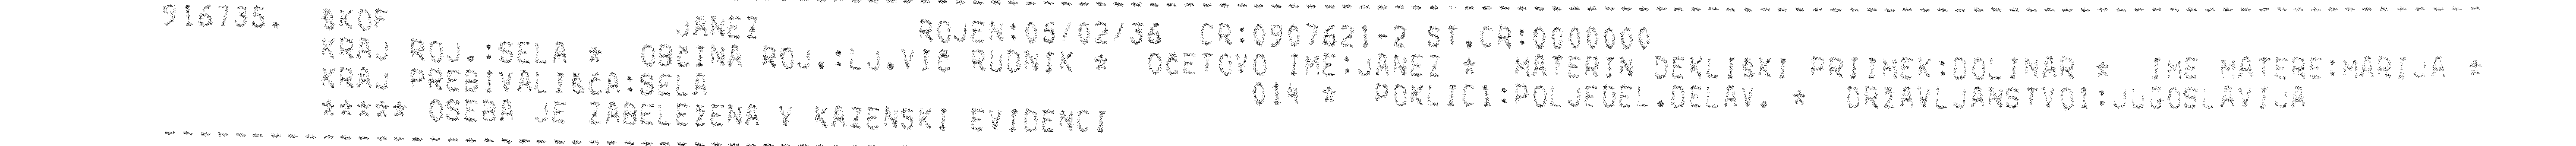 916735. ŠKOF JANEZ ROJEN:05/02/36 CR:0907621-2 ST.CR:0000000
KRAJ ROJ.:SELA * OBČINA ROJ.:LJ.VIČ RUDNIK * OČETOVO IME:JANEZ * MATERIN DEKLIŠKI PRIIMEK:DOLINAR * IME MATERE:MARIJA *
KRAJ PREBIVALIŠČA:SELA 014 * POKLIC1:POLJEDEL.DELAV. * DRŽAVLJANSTVO1:JUGOSLAVIJA
***** OSEBA JE ZABELEŽENA V KAZENSKI EVIDENCI